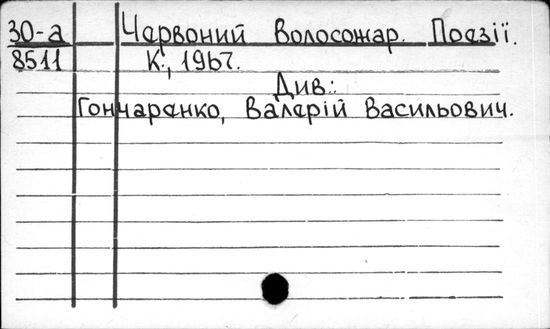 30-а Червоний Волосожар. Поезії.
8511 К., 1967.
Див.:
Гончаренко, Валерій Васильович.